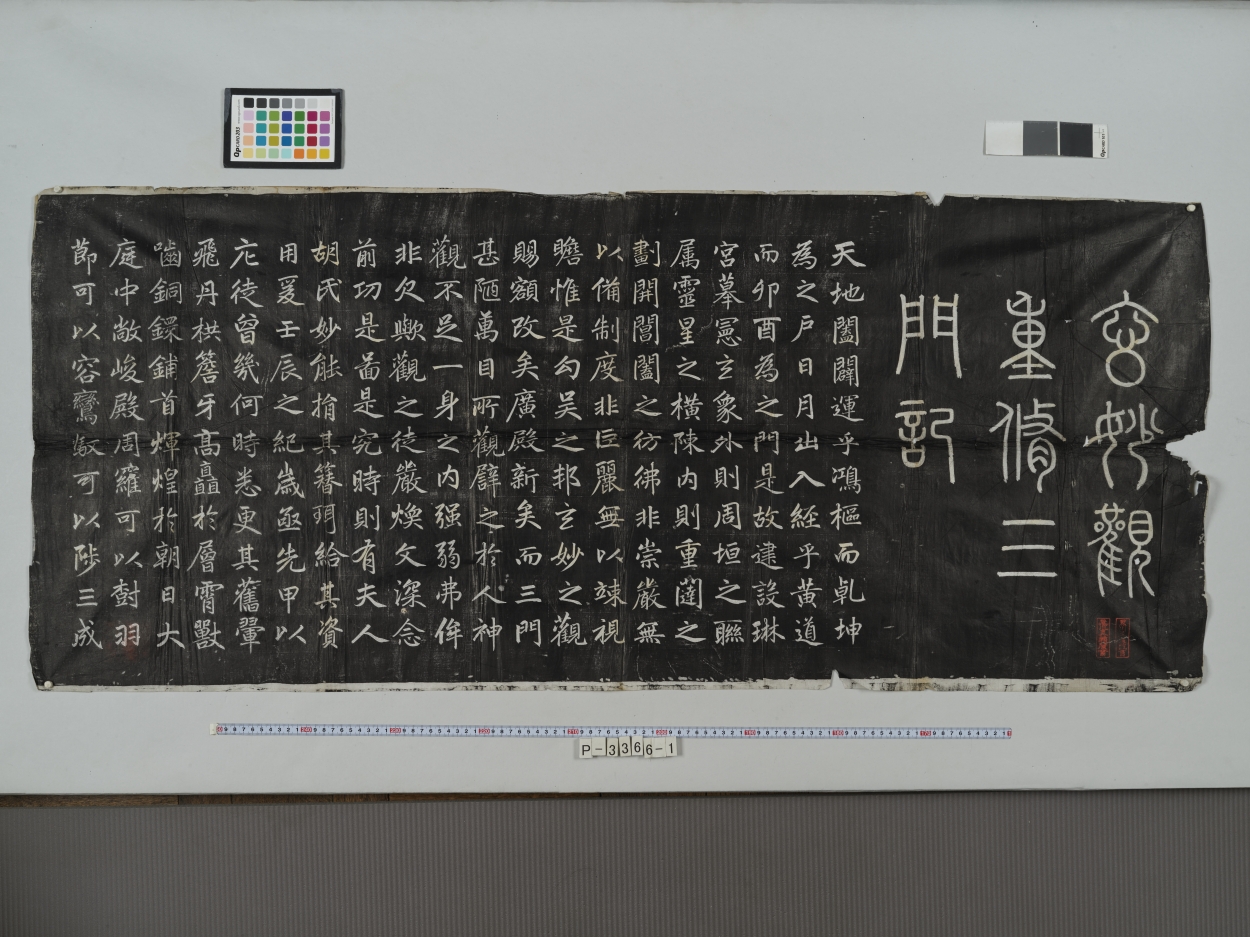 玄妙觀
重脩三
門記
天地闔闢運乎鴻樞而乹坤
為之戶日月出入經乎黄道
而卯酉為之門是故建設琳
宮摹憲玄象外則周垣之聮
属靈星之橫陳内則重闥之
劃開閶闔之彷彿非崇嚴無
以備制度非巨麗無以竦視
瞻惟是勾吴之邦玄妙之觀
賜額改矣廣殿新矣而三門
甚陋萬目所觀譬之於人神
觀不足一身之内强弱弗侔
非欠歟觀之徒嚴焕文深念
前功是啚是究時則有夫人
胡氏妙能捐其簪珥給其資
用爰壬辰之紀歳亟先甲以
庀徒曾幾何時悉更其舊翬
飛丹栱簷牙髙矗於層霄獸
齧銅鐶鋪首煇煌於朝日大
庭中敞峻殿周羅可以樹羽
莭可以容鸞馭可以陟三成
P-3366-1